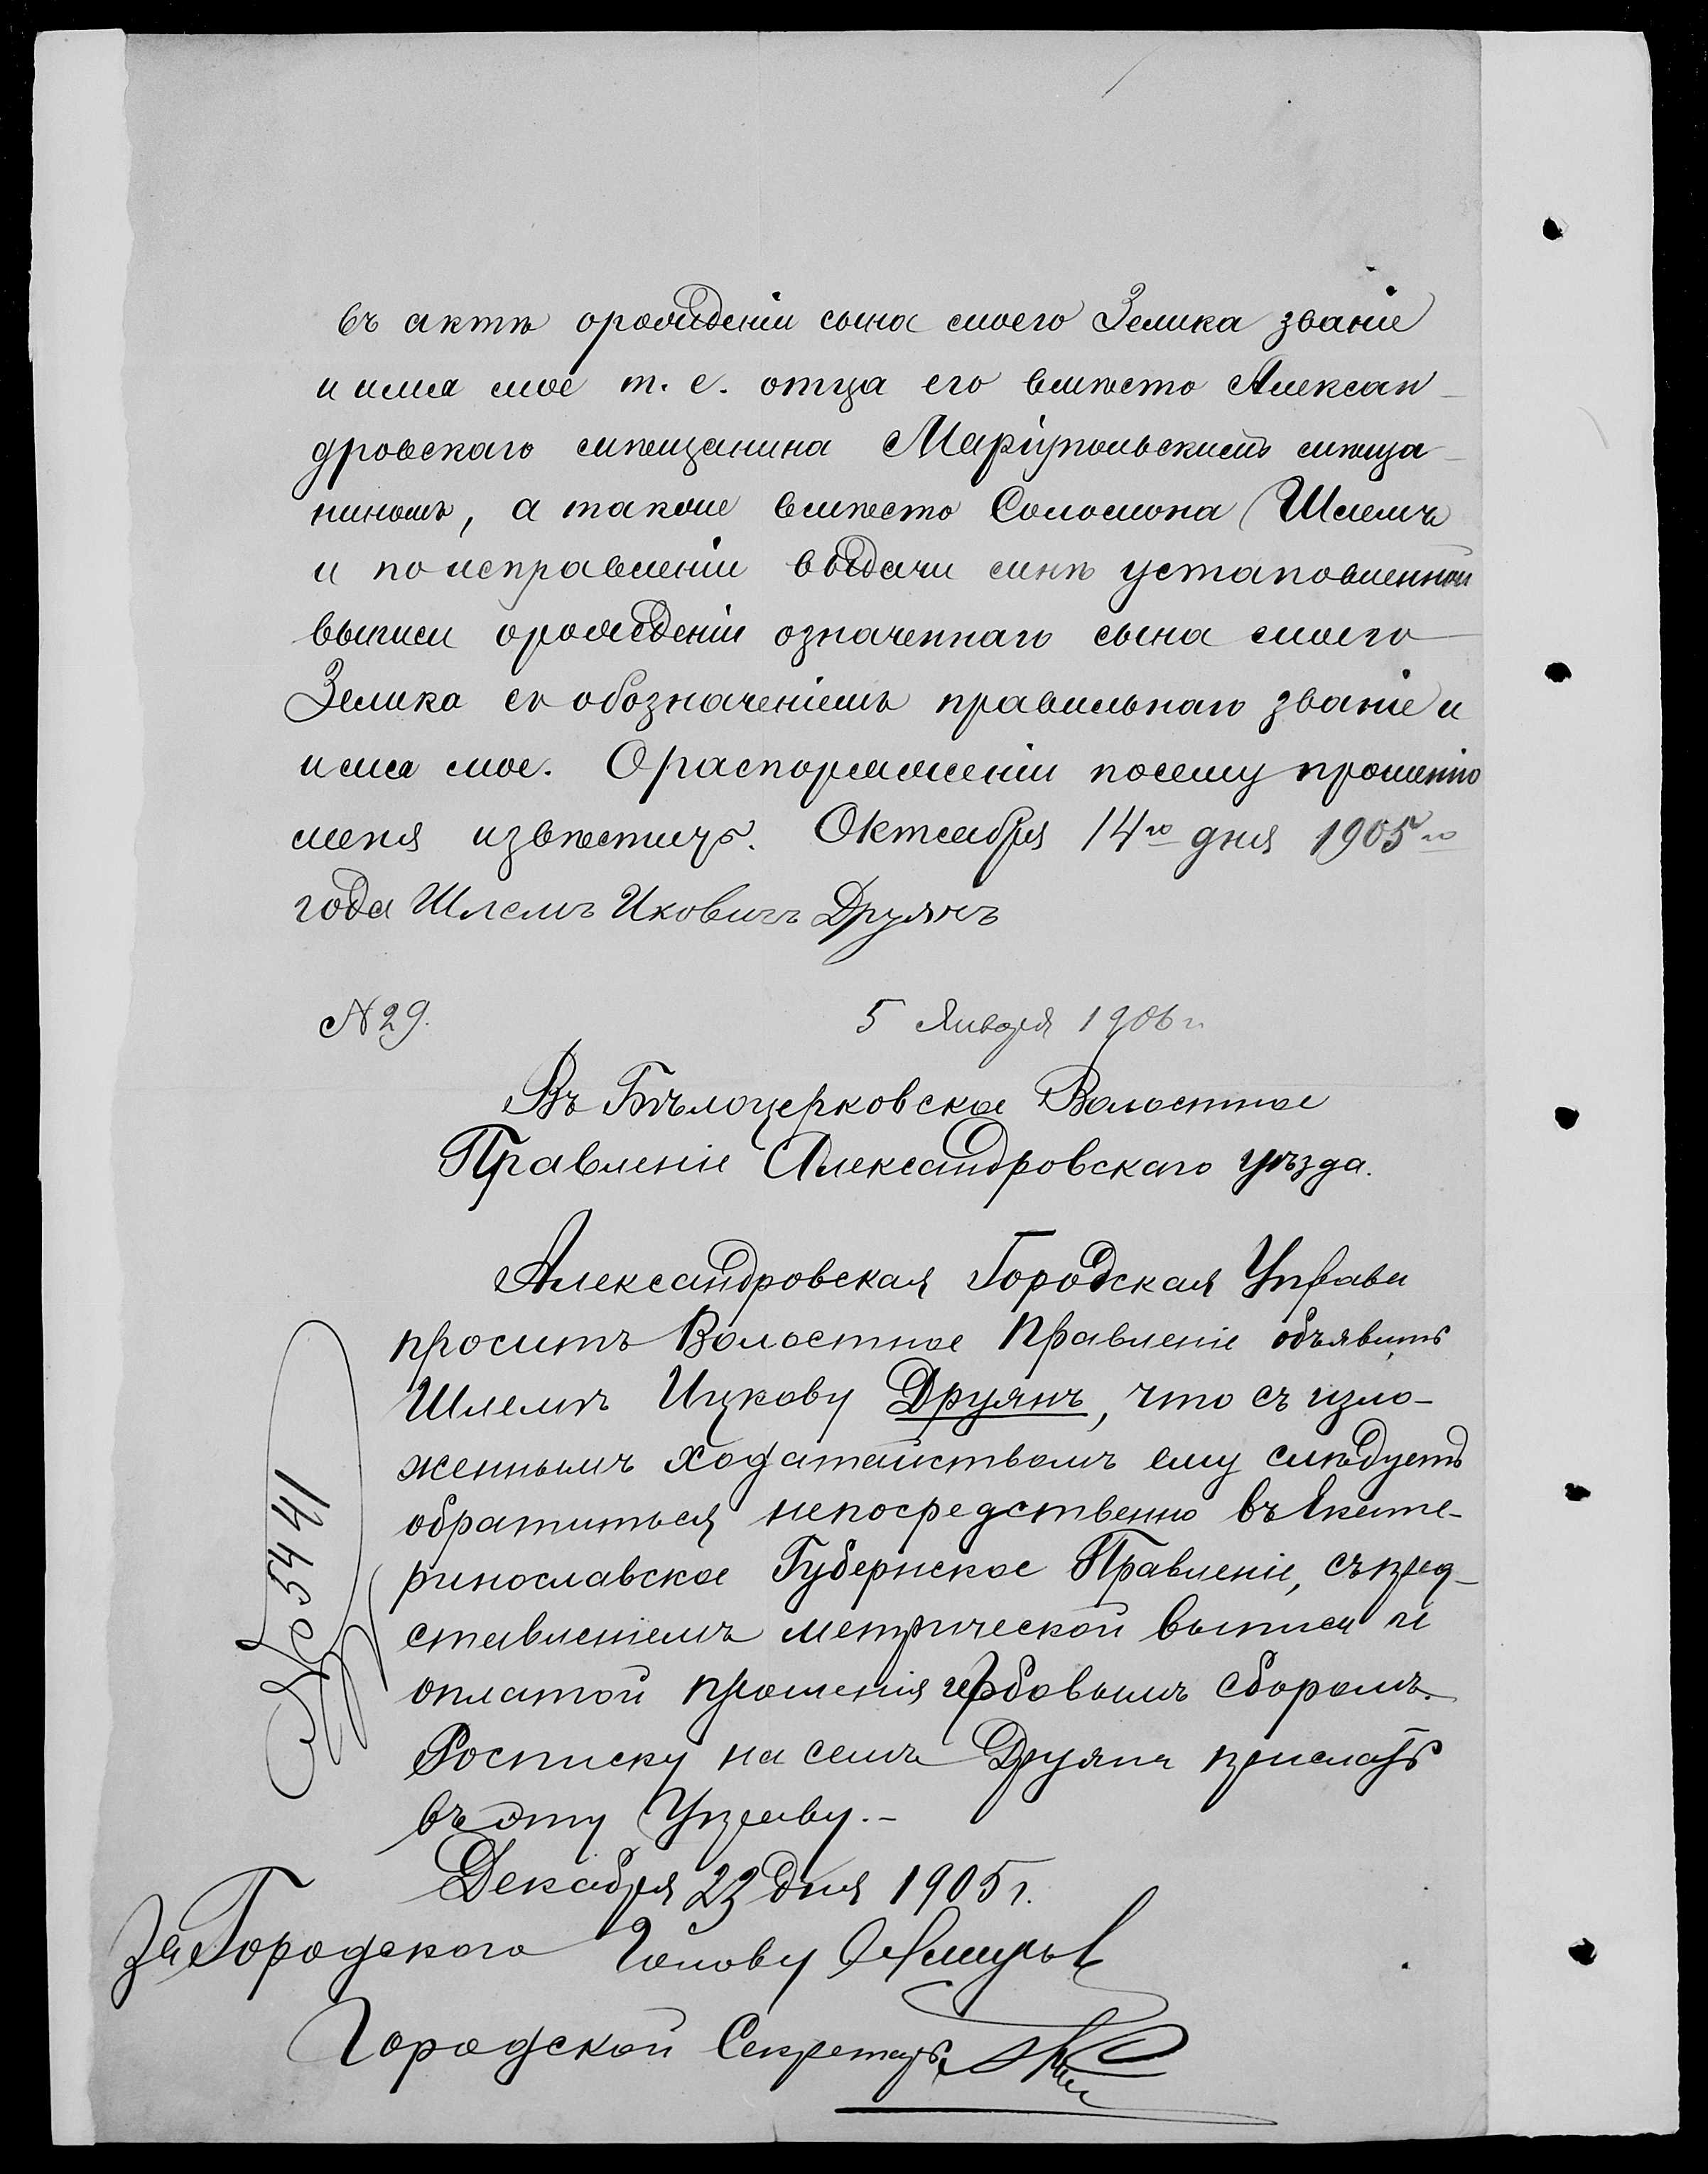 въ актѣ орожденіи сына моего Зелика званіе
и имя мое т. е. отца его вмѣсто Александ-
дровскаго мѣщанина Маріупольскимъ мѣща-
ниномъ, а также вмѣсто Соломона Шлемъ
и по исправленіи выдачи мнѣ установленной
выписи орожденіи означеннаго сына моего
Зелика съ обозначеніемъ правильнаго званіе и
имя мое. О распоряженіи посему прошенію
меня извѣстить. Октября 14го дня 1905го
года Шлемъ Ицковичъ Друянъ
№ 29. 5 Января 1906 г.
Въ Бѣлоцерковское Волостное
Правленіе Александровскаго уѣзда.
Александровская Городская Управа
проситъ Волостное Правленіе объявить
Шлемѣ Ицкову Друянъ, что съ изло-
женнымъ ходатайствомъ ему слѣдуетъ
обратиться непосредственно въ Екате-
ринославское Губернское Правленіе, съ пред-
ставленіемъ метрической выписи и
оплатой прошенія гербовымъ сборомъ.
Росписку на семъ Друяна прислать
въ эту Управу.-
Декабря 23 дня 1905 г.
За Городского Голову
Городской Секретарь
№ 5441